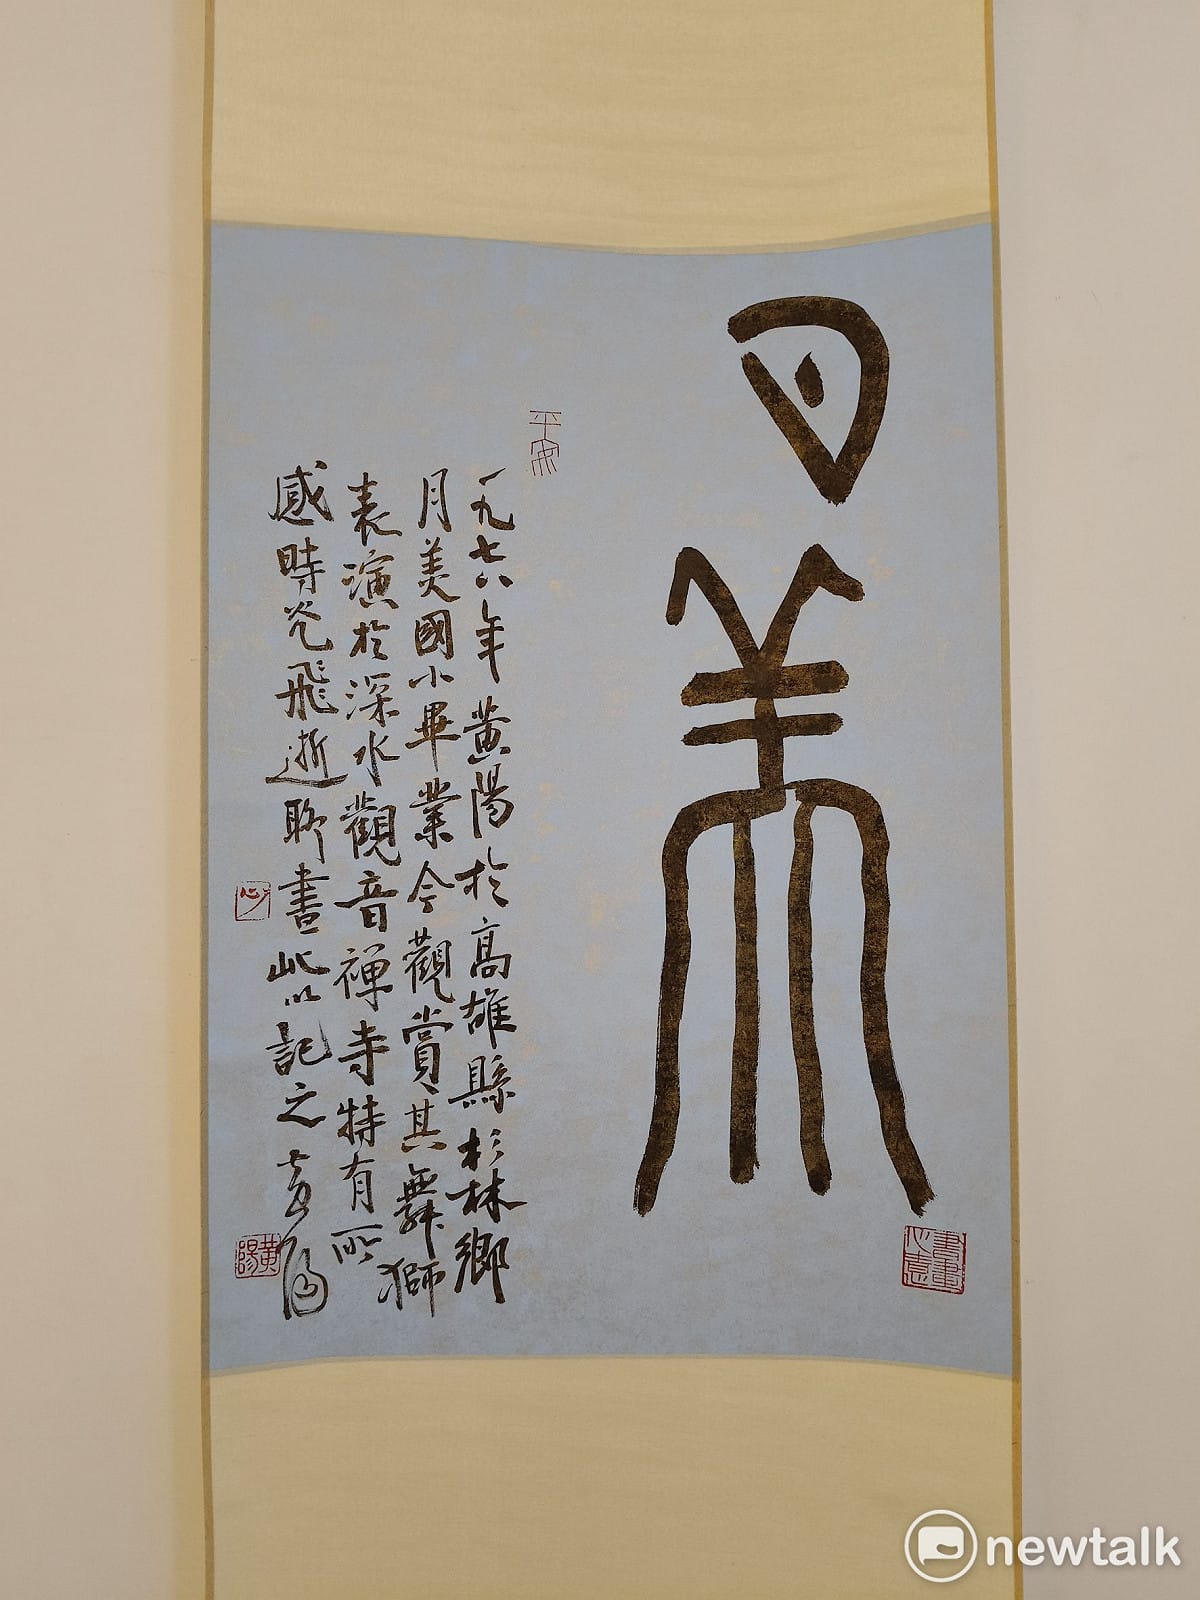 日美
平安
一九七六年黄陽於高雄縣杉林鄉
月美國小畢業今觀賞其舞獅
表演於深水觀音禪寺特有所
感時光飛逝聊書此以記之黄陽
心
黄陽
書畫心意
newtalk